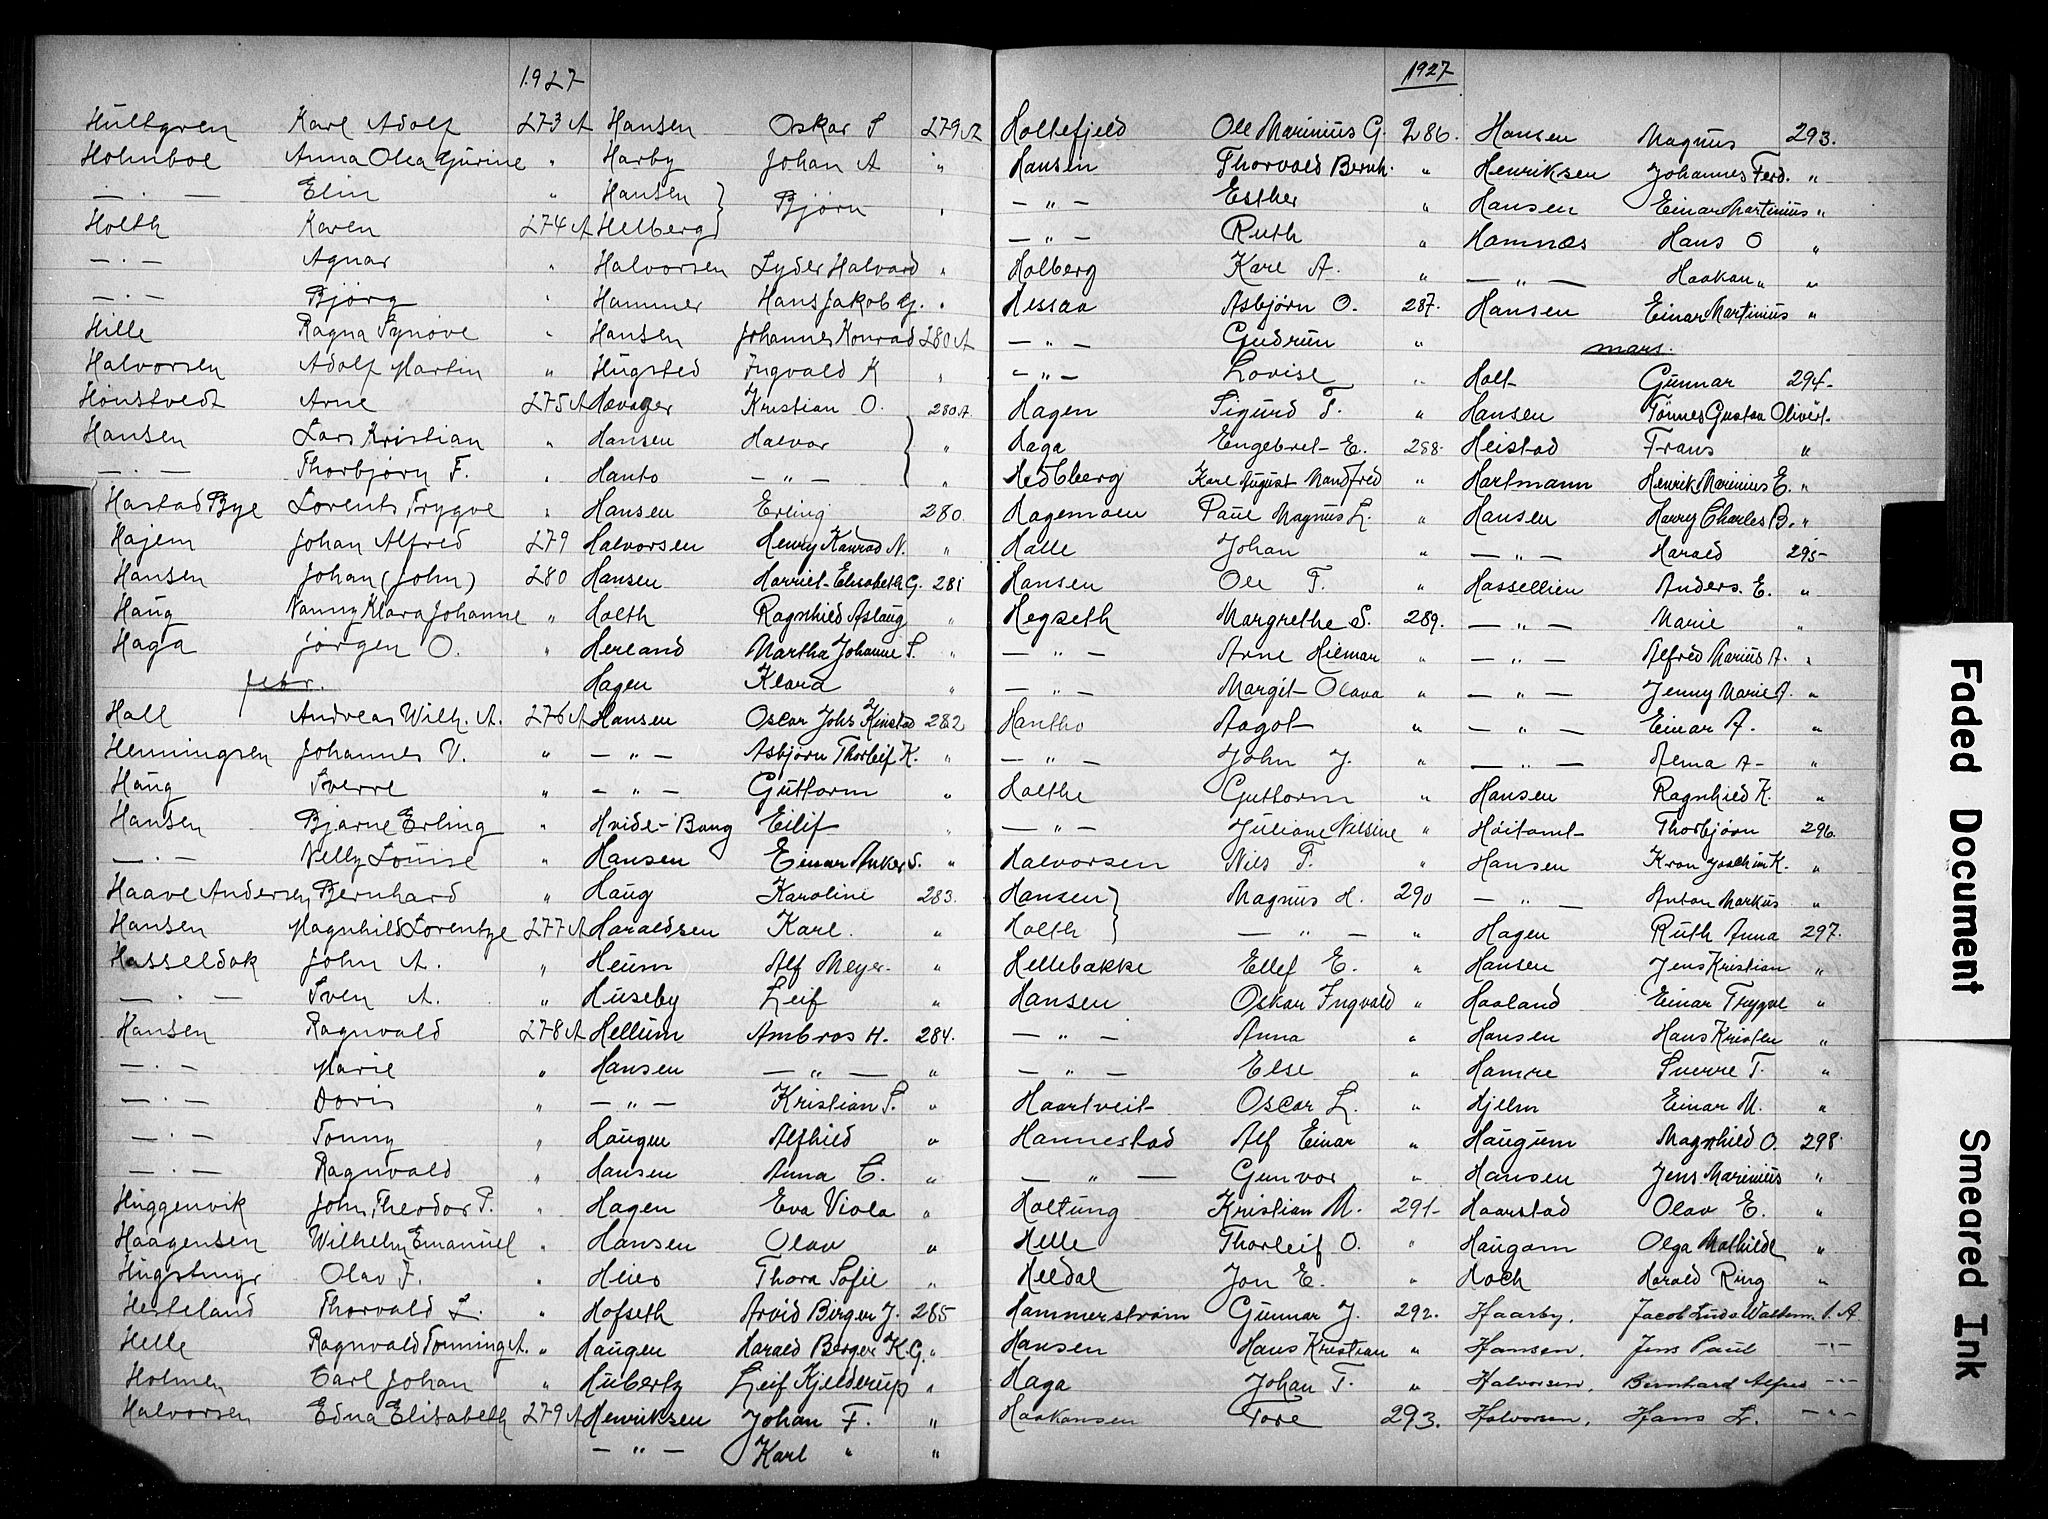 1927
Hultgren Karl Adolf 273 A
Holmboe Anna Olea Gurine "
— . — Elin "
Holth Karen 274 A
— . — Agnar "
— . — Bjørg "
Hille Ragna Synøve "
Halvorsen Adolf Martin "
Hønstvedt Arne 275 A
Hansen Lars Kristian "
— . — Thorbjørn F. "
Hastad Bye Lorents Trygve "
Hajem Johan Alfred 279
Hansen Johan (John) 280
Haug Nanny Klara Johanne "
Haga Jørgen O. "
febr.
Hall Andreas Wilh. A. 276 A
Henningsen Johannes V. "
Haug Sverre "
Hansen Bjarne Erling "
— . — Nelly Louise "
Haave Andersen Bernhard "
Hansen Magnhild Lorentze 277 A
Hasseldok John A. "
— . — Sven A. "
Hansen Ragnvald 278 A
— . — Marie "
— . — Doris "
— . — Tonny "
— . — Ragnvald "
Huggenvik John Theodor S. "
Haagensen Wilhelm Emanuel "
Hugstmyr Olav F. "
Hesteland Thorvald L. "
Helle Ragnvald Tonning A. "
Holmen Carl Johan "
Halvorsen Edna Elisabeth 279 A
Hansen Oskar S 279 A
Harby Johan A "
Hansen } Bjørn "
Helberg }
Halvorsen Lyder Halvard "
Hammer Hans Jakob G. "
Hansen Johannes Konrad 280 A
Hugsted Ingvald K "
Hovager Kristian O. 280 A.
Hansen Halvor } "
Hanto — " — } "
Hansen Erling 280
Halvorsen Henry Konrad N. "
Hansen Harriet Elisabeth G. 281
Holth Ragnhild Aslaug "
Herland Martha Johanne S. "
Hagen Klara "
Hansen Oscar Johs Kinstad 282
— " — Asbjørn Thorleif K. "
— " — Guttorm "
Hvide-Bang Eilif "
Hansen Einar Anker S. "
Haug Karoline 283
Haraldsen Karl. "
Heum Alf Meyer. "
Huseby Leif "
Hellum Ambros H. 284.
Hansen — " — "
— " — Kristian S. "
Haugen Alfhild "
Hansen Anna C. "
Hagen Eva Viola "
Hansen Olav "
Heier Thora Sofie "
Hofseth Arvid Birger J. 285
Haugen Harald Berger K. G. "
Huberty Leif Kjelderup "
Henriksen Johan F. "
— " — Karl " "
1927
Holtefjeld Ole Marinius G. 286.
Hansen Thorvald Bernh. "
— " — Esther "
— " — Ruth "
Holberg Karl A. "
Hessaa Asbjørn O. 287.
— " — Gudrun "
— " — Lovise "
Hagen Sigurd T. "
Haga Engebret E. 288.
Hedberg Karl August Mandfred "
Hagemoen Paul Magnus L. "
Halle Johan "
Hansen Ole T. "
Hegseth Margrethe S. 289.
— " — Arne Hilmar "
— " — Margit Olava "
Hantho Aagot "
— " — John J. "
Holthe Guttorm "
— " — Juliane Nilsine "
Halvorsen Nils T. "
Hansen } Magnus H. 290
Holth } — " — "
Hellebakke Ellef E. "
Hansen Oskar Ingvald "
— " — Anna "
— " — Else "
Haartveit Oscar L. "
Hannestad Alf Einar "
— " — Gunvor "
Holtung Kristian M. 291
Helle Thorleif O. "
Heldal Jon E. "
Hammerstrøm Gunnar J. 292.
Hansen Hans Kristian "
Haga Johan T. "
Haakonsen Tore 293.
Hansen Magnus 293.
Henriksen Johannes Ferd. "
Hansen Einar Martinius "
Hamnæs Hans O "
— " — Haakon " "
Hansen Einar Martinius "
mars.
Holt Gunnar 294
Hansen Tønnes Gustav Olivert
Heistad Frans "
Hartmann Henrik Marinius E. "
Hansen Harry Charles B. "
— " — Harald 295
Hassellien Anders. E. "
— " — Marie "
— " — Alfred Marius A. "
— " — Jenny Marie A. "
— " — Einar A. "
— " — Aema A "
Hansen Ragnhild K. "
Høitomt Thorbjørn 296.
Hansen Kron Joachim K. "
— " — Anton Markus "
Hagen Ruth Anna 297.
Hansen Jens Kristian "
Haaland Einar Trygve "
Hansen Hans Kristen "
Hamre Sverre T. "
Hjelm Einar M. "
Haugum Magnhild O. 298
Hansen Jens Marinius "
Haarstad Olav E. "
Haugom Olga Mathilde "
Hoch Harald Ring "
Haarby, Jacob Ludv. 1. A
Hansen, Jens Paul — " —
Halvorsen, Bernhard Alfred — " —
Halvorsen, Hans L. — " —
Faded Document
Smeared Ink